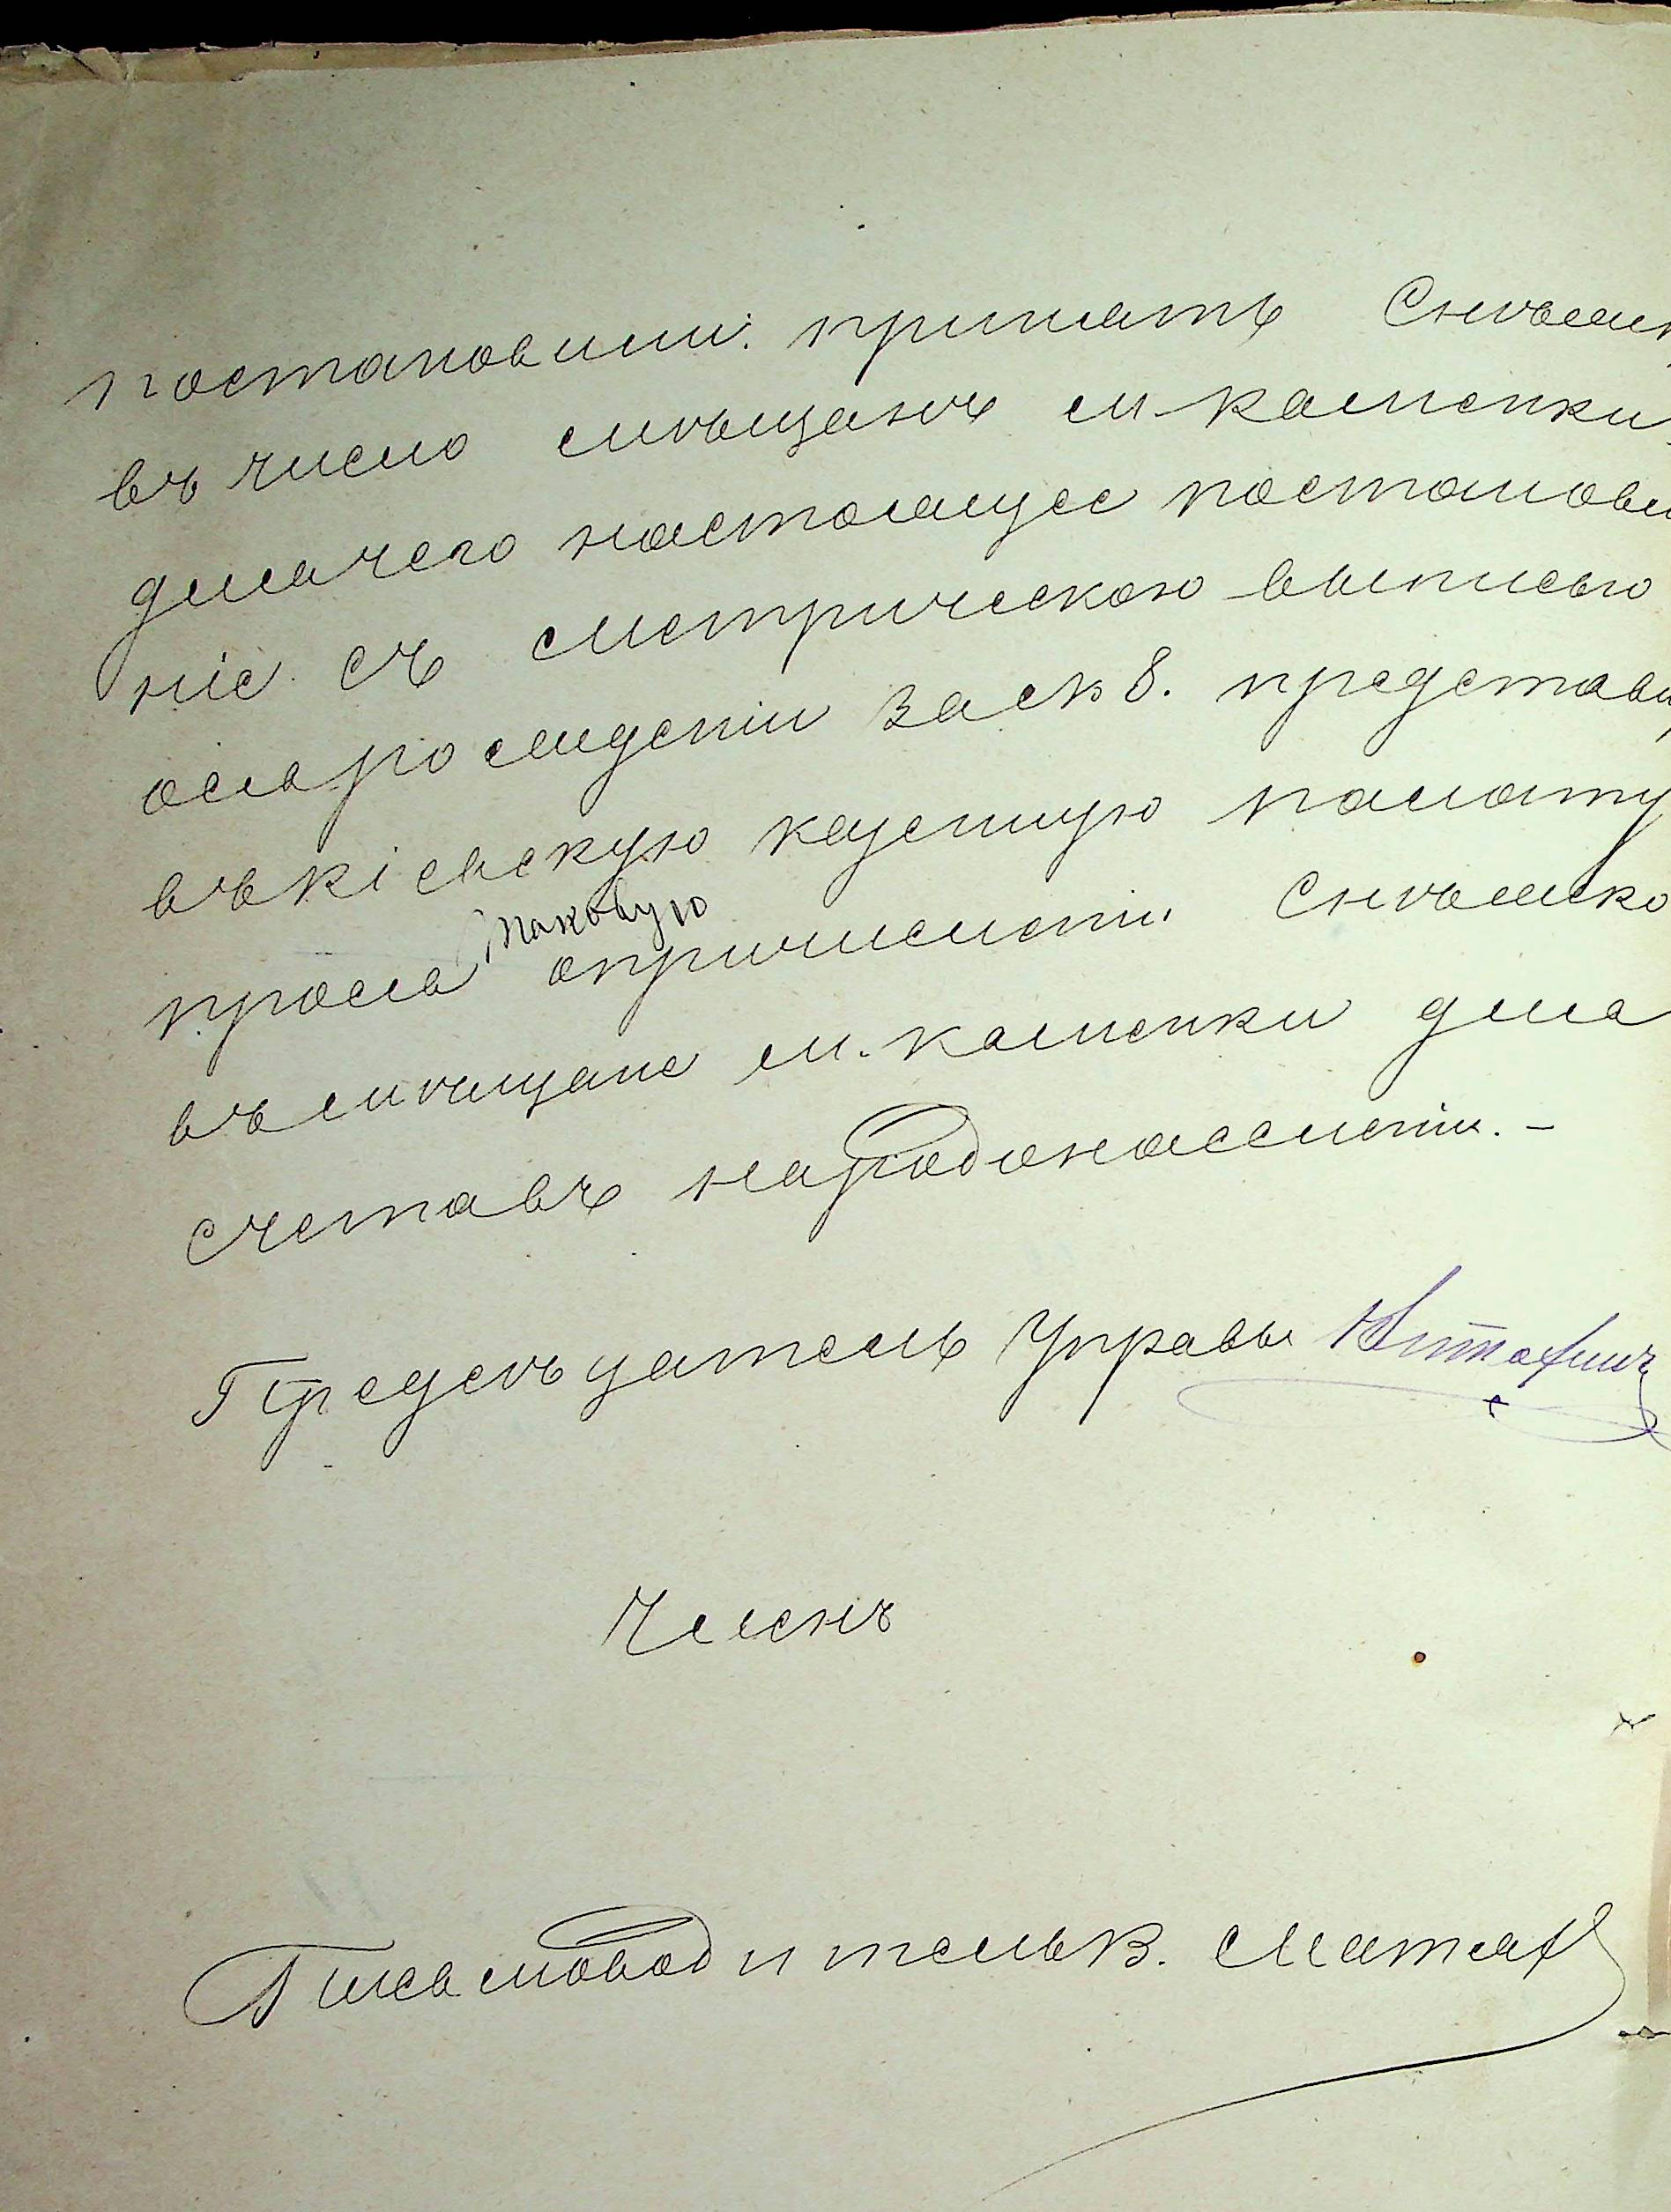 постановили: принять Снѣжк
въ число мѣщанъ м. каменки,
для чего настоящее постановле
ніе съ метрическою выписью
о его рожденіи за № 8. представи
въ кіевскую казенную палату
прося таковую о причисленіи Снѣжко
въ мѣщане м. каменки для
счета въ народонаселенія. –
Предсѣдатель Управы
Членъ
Письмоводитель В.